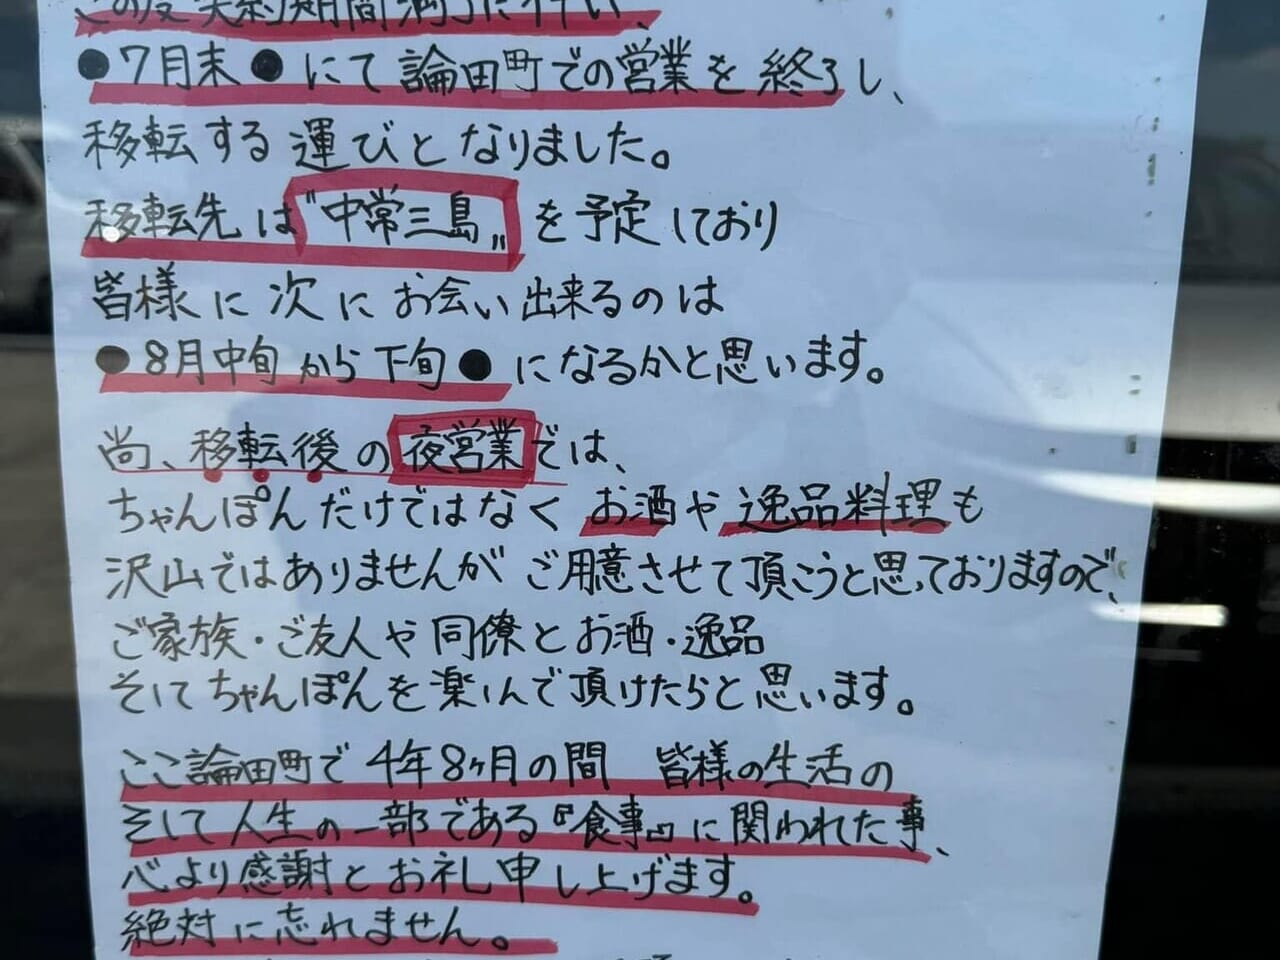 この度契約期間満了に伴い、
●7月末●にて論田町での営業を終了し、
移転する運びとなりました。
移転先は"中常三島"を予定しており
皆様に次にお会い出来るのは
●8月中旬から下旬●になるかと思います。
尚、移転後の夜営業では、
ちゃんぽんだけではなくお酒や逸品料理も
沢山ではありませんがご用意させて頂こうと思っておりますので、
ご家族・ご友人や同僚とお酒・逸品
そしてちゃんぽんを楽しんで頂けたらと思います。
ここ論田町で4年8ヶ月の間 皆様の生活の
そして人生の一部である『食事』に関われた事、
心より感謝とお礼申し上げます。
絶対に忘れません。